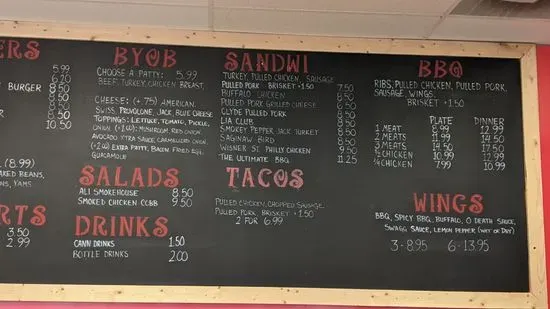 ERS
5.99
6.20
BURGER 8.50
8.50
8.50
8.50
10.50
(8.99)
BAKED BEANS,
YAMS
RTS
3.50
2.99
BYOB
CHOOSE A PATTY: 5.99
BEEF, TURKEY, CHICKEN BREAST,
CHEESE: (+.75) AMERICAN,
SWISS, PROVOLONE, JACK, BLUE CHEESE
TOPPINGS: LETTUCE, TOMATO, PICKLE,
ONION MUSHROOM, RED ONION
AVOCADO, XTRA SAUCE, CARAMELIZED ONION,
EXTRA PATTY, BACON, FRIED EGG,
GUACAMOLE
SALADS
ALI SMOKEHOUSE 8.50
SMOKED CHICKEN COBB 9.50
DRINKS
CANN DRINKS 1.50
BOTTLE DRINKS 2.00
SANDWI
TURKEY, PULLED CHICKEN, SAUSAGE
PULLED PORK BRISKET +1.50 7.50
BUFFALO CHICKEN 8.50
PULLED PORK GRILLED CHEESE 8.50
CLYDE PULLED PORK 8.50
LIA CLUB 8.50
SMOKEY PEPPER JACK TURKEY 8.50
SAGINAW BIRD 8.50
WISNER ST. PHILLY CHICKEN 9.50
THE ULTIMATE BBQ 11.25
TACOS
PULLED CHICKEN, CHOPPED SAUSAGE,
PULLED PORK, BRISKET +1.50
2 FOR 6.99
BBQ
RIBS, PULLED CHICKEN, PULLED PORK,
SAUSAGE, WINGS,
BRISKET +1.50
PLATE DINNER
1 MEAT 8.99 12.99
2 MEATS 11.99 13.99
3 MEATS 14.50 17.50
½ CHICKEN 10.99 13.99
¼ CHICKEN 7.99 10.99
WINGS
BBQ, SPICY BBQ, BUFFALO, O DEATH SAUCE,
SWAGG SAUCE, LEMON PEPPER (WET OR DRY)
3 - 8.95 6 - 13.95